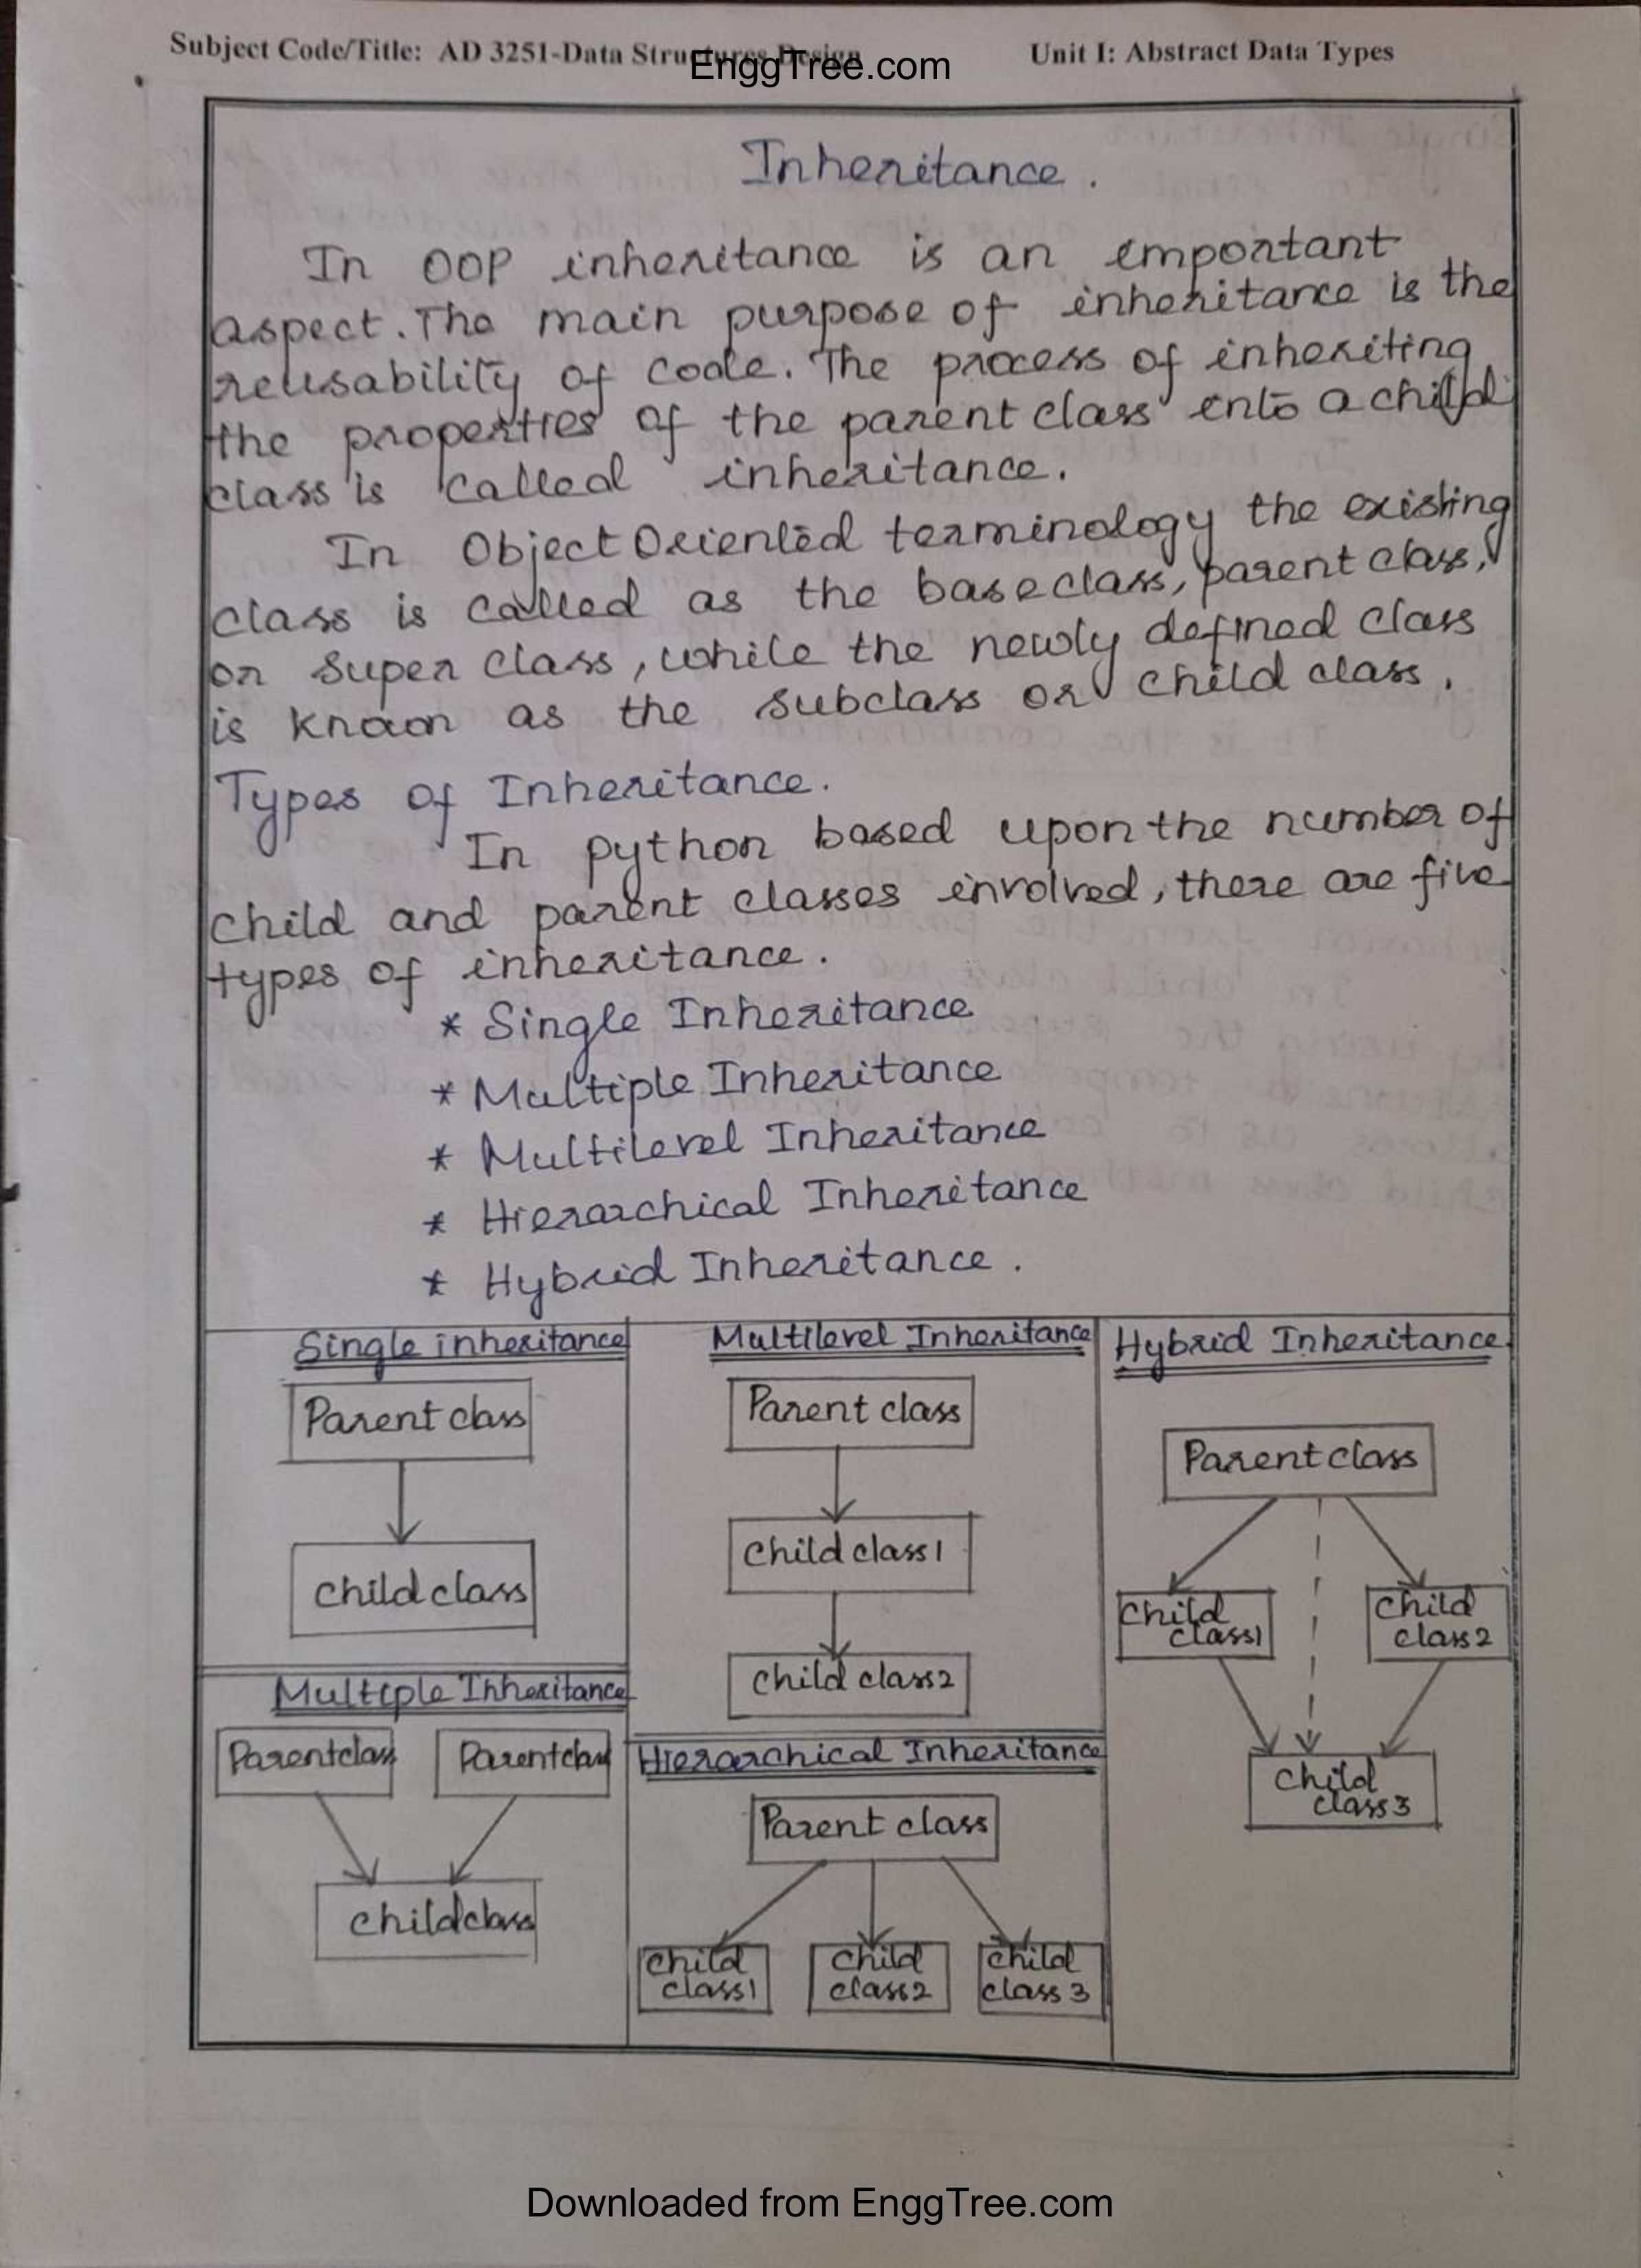 Subject Code/Title: AD 3251-Data Structures Design
Unit I: Abstract Data Types
EnggTree.com
Inheritance.
In OOP inheritance is an important
aspect. The main purpose of inheritance is the
reusability of code. The process of inheriting
the properties of the parent class into a child
class is called inheritance.
In Object Oriented terminology the existing
class is called as the base class, parent class,
or super class, while the newly defined class
is known as the subclass or child class.
Types of Inheritance.
In python based upon the number of
child and parent classes involved, there are five
types of inheritance.
* Single Inheritance
* Multiple Inheritance
* Multilevel Inheritance
* Hierarchical Inheritance
* Hybrid Inheritance.
Single inheritance
Parent class
Child class
Multiple Inheritance
Parent class
Parent class
Child class
Multilevel Inheritance
Parent class
Child class1
Child class2
Hierarchical Inheritance
Parent class
Child
class1
Child
class2
Child
class 3
Hybrid Inheritance
Parent class
Child
class1
Child
class2
Child
class3
Downloaded from EnggTree.com